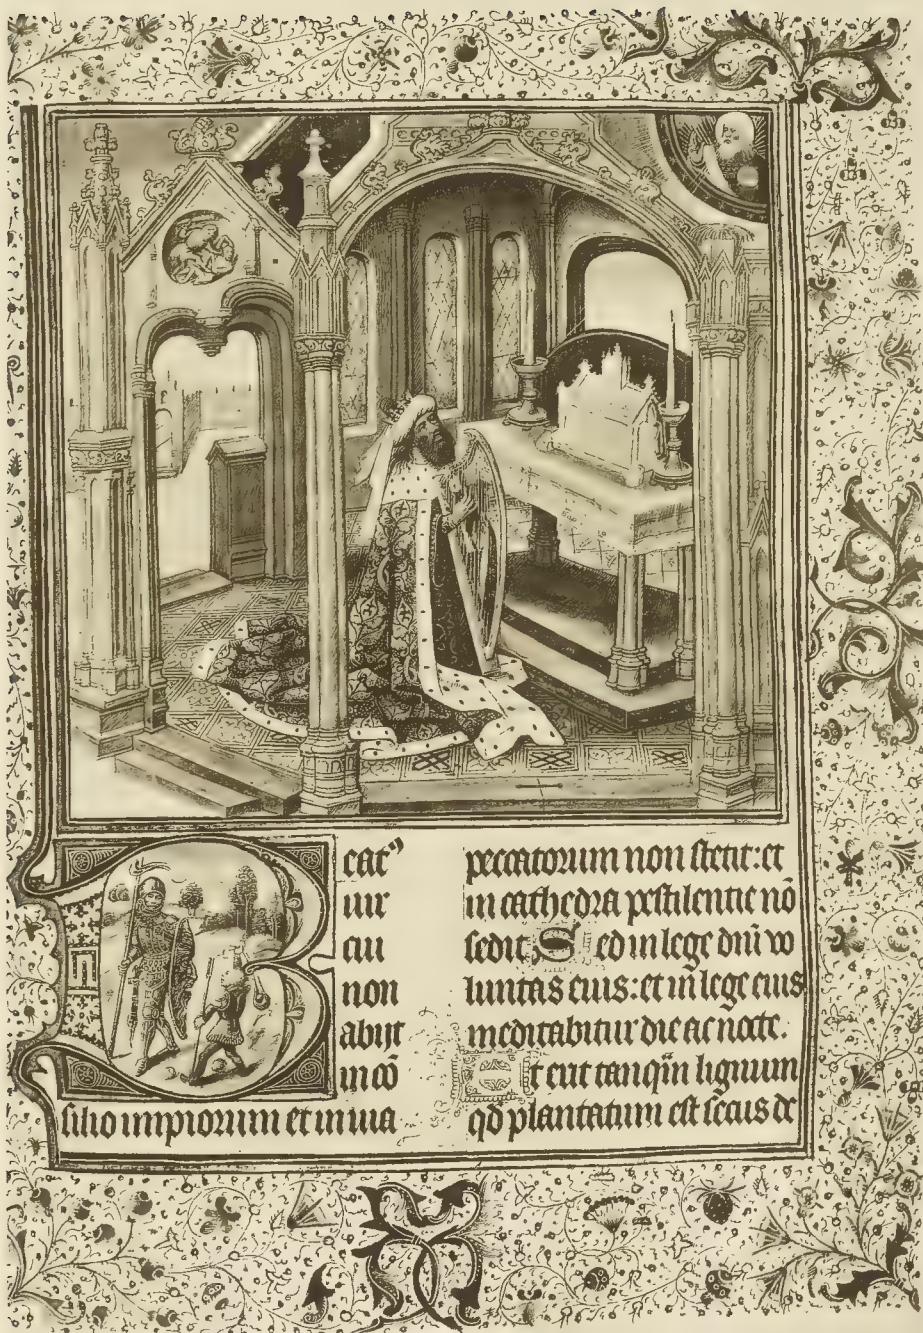 Beatꝰ
uir
cui
non
abijt
in cō
silio impiorum et in uia
peccatorum non stetit: et
in cathedra pestilentie nō
sedit Sed in lege dn̄i vo
luntas eius: et in lege eius
meditabitur die ac nocte.
Et erit tanqm̄ lignum
qd̄ plantatum est secus de